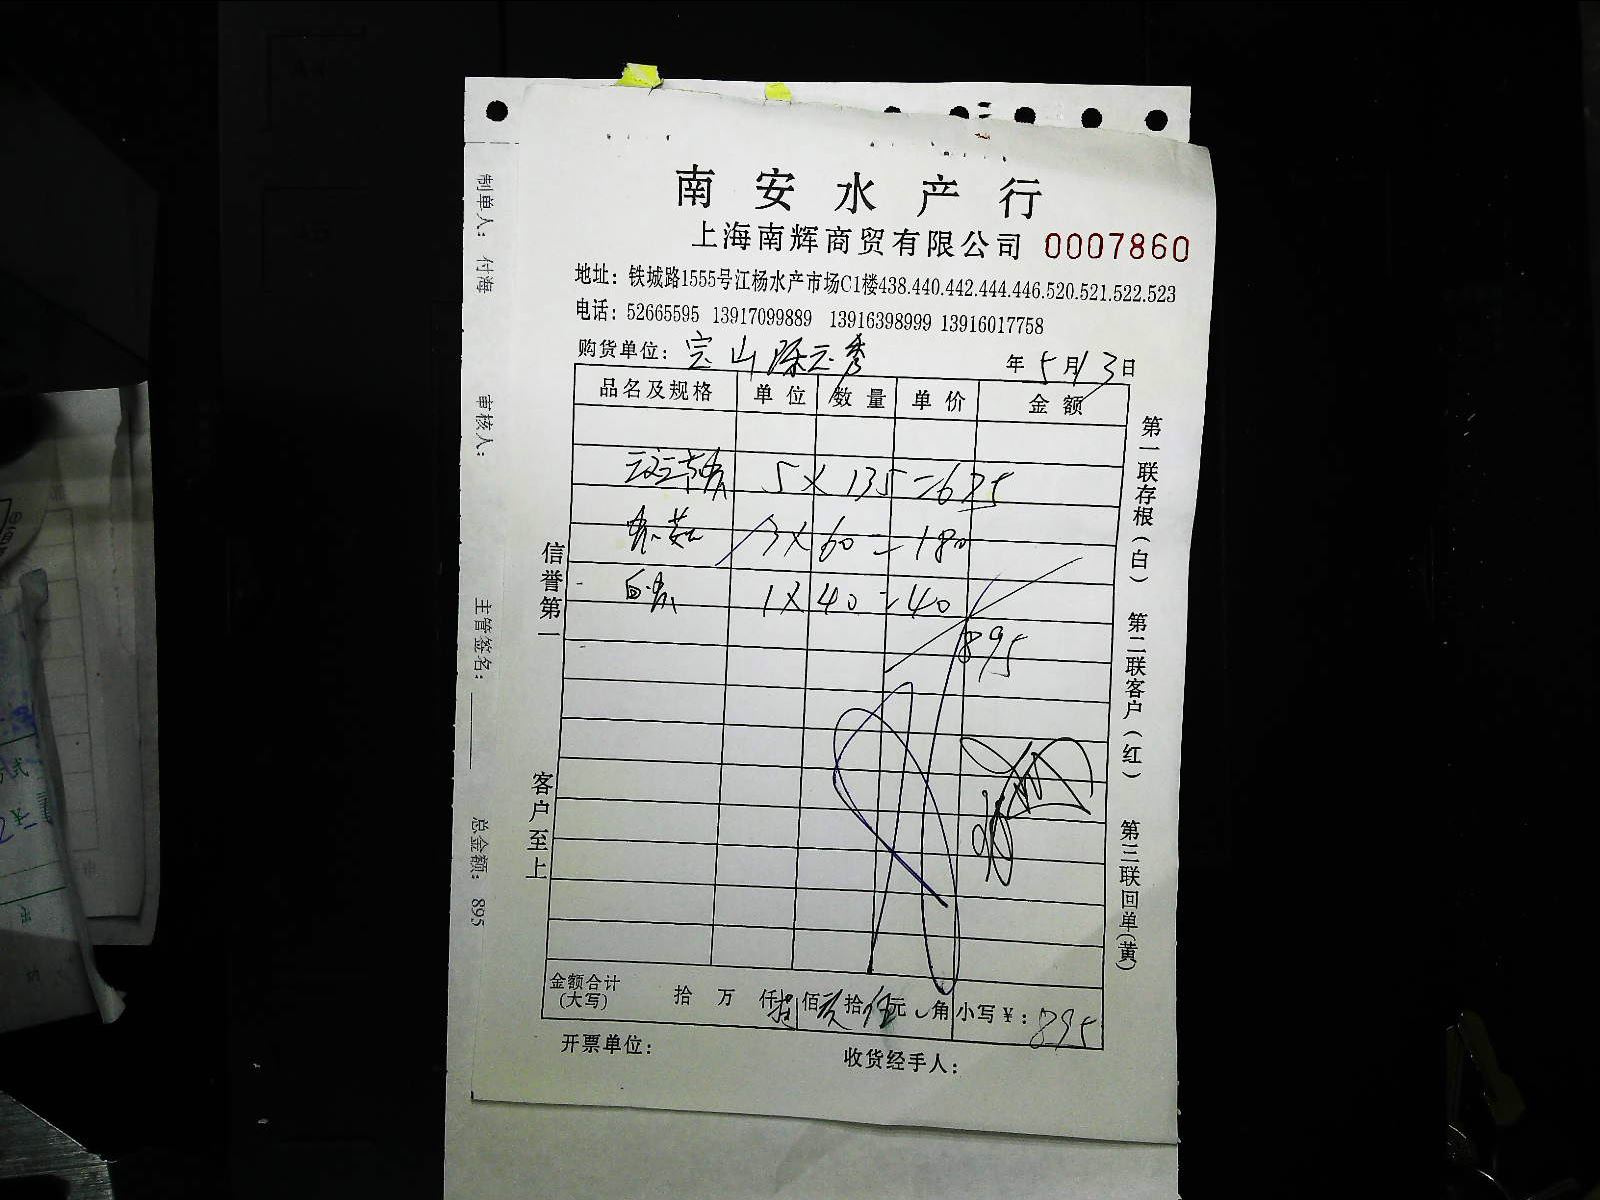 南安水产行
上海南辉商贸有限公司 0007860
地址：铁城路1555号江杨水产市场C1楼438.440.442.444.446.520.521.522.523
电话：52665595 13917099889 13916398999 13916017758
购货单位：宝山陈云秀 年5月13日
品名及规格 单位 数量 单价 金额
5×135=675
3×60=180
1×40=40
895
金额合计(大写) 拾 万 仟捌佰玖拾伍元 角 小写¥：895
开票单位： 收货经手人：
信誉第一
客户至上
第一联存根(白) 第二联客户(红) 第三联回单(黄)
制单人： 付海 审核人： 主管签名： 总金额： 895